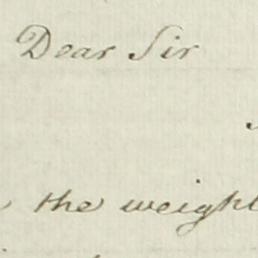 Dear Sir
the weight